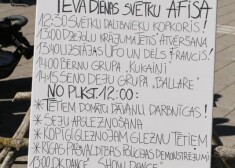 TĒVA DIENAS SVĒTKU AFIŠA
12:50 SVĒTKU DALĪBNIEKU KOPKORIS!
13:00 DZEJOĻU KRĀJUMA IETIS ATVĒRŠANA
UZSTĀJAS UFO UN DĒLS FRANCIS!
14:00 BĒRNU GRUPA "KUKAIŅI"
14:15 SENO DEJU GRUPA "BALLARE"
NO PLKST. 12:00:
* TĒTIEM DOMĀTU DĀVANU DARBNĪCAS!
* SEJU APGLEZNOŠANA
* KOPĪGI GLEZNOJAM GLEZNU TĒTIEM
* RĪGAS PAŠVALDĪBAS POLICIJAS DEMONSTRĒJUMI
DK DANCE "SHOW DANCE"